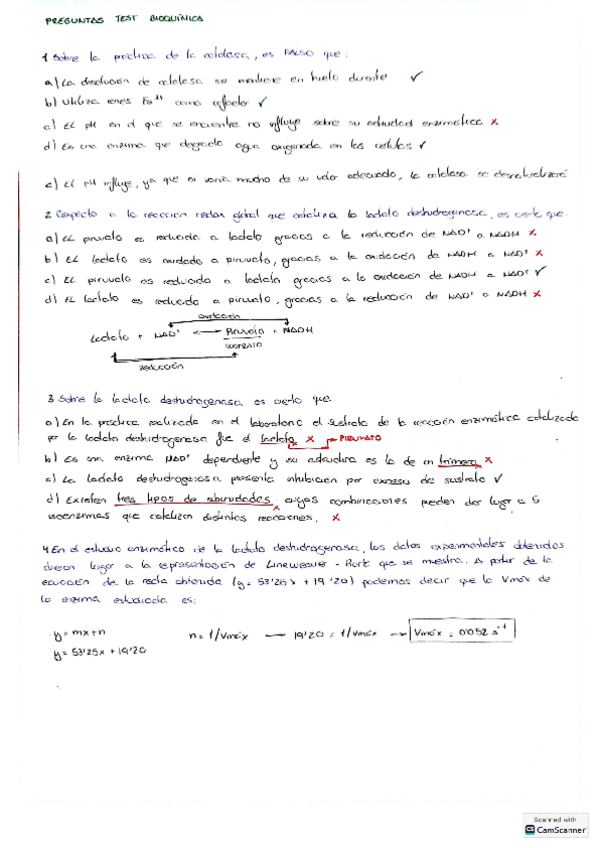 PREGUNTAS TEST BIOQUÍMICA
1 Sobre la práctica de la catalasa, es FALSO que:
a) La disolución de catalasa se mantiene en hielo durante ✓
b) Utiliza iones Fe³⁺ como cofactor ✓
c) El pH en el que se encuentre no influye sobre su actividad enzimática ✗
d) Es una enzima que degrada agua oxigenada en las células ✓
c) El pH influye, ya que si varía mucho de su valor adecuado, la catalasa se desnaturalizará
2 Respecto a la reacción redox global que cataliza la lactato deshidrogenasa, es cierto que:
a) El piruvato es reducido a lactato gracias a la reducción de NAD⁺ a NADH ✗
b) El lactato es oxidado a piruvato, gracias a la oxidación de NADH a NAD⁺ ✗
c) El piruvato es reducido a lactato gracias a la oxidación de NADH a NAD⁺ ✓
d) El lactato es reducido a piruvato, gracias a la reducción de NAD⁺ a NADH ✗
oxidación
Lactato + NAD⁺ ⟷ Piruvato + NADH
reducción
3 Sobre la lactato deshidrogenasa es cierto que:
a) En la práctica realizada en el laboratorio el sustrato de la reacción enzimática catalizada
por la lactato deshidrogenasa fue el lactato ✗ → PIRUVATO
b) Es una enzima NAD⁺ dependiente y su estructura es la de un trímero ✗
c) La lactato deshidrogenasa presenta inhibición por exceso de sustrato ✓
d) Existen tres tipos de subunidades, cuyas combinaciones pueden dar lugar a 5
isoenzimas que catalizan distintas reacciones. ✗
4. En el estudio enzimático de la lactato deshidrogenasa, los datos experimentales obtenidos
dieron lugar a la representación de Lineweaver-Burk que se muestra. A partir de la
ecuación de la recta obtenida (y = 53'25x + 19'20) podemos decir que la Vmáx de
la enzima estudiada es:
y = mx + n n = 1/Vmáx — 19'20 = 1/Vmáx → Vmáx = 0'052 s⁻¹
y = 53'25x + 19'20
Scanned with
CamScanner